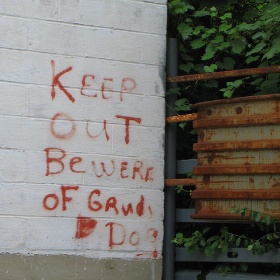 KEEP
OUT
BEWERE
OF GAUD
DOG